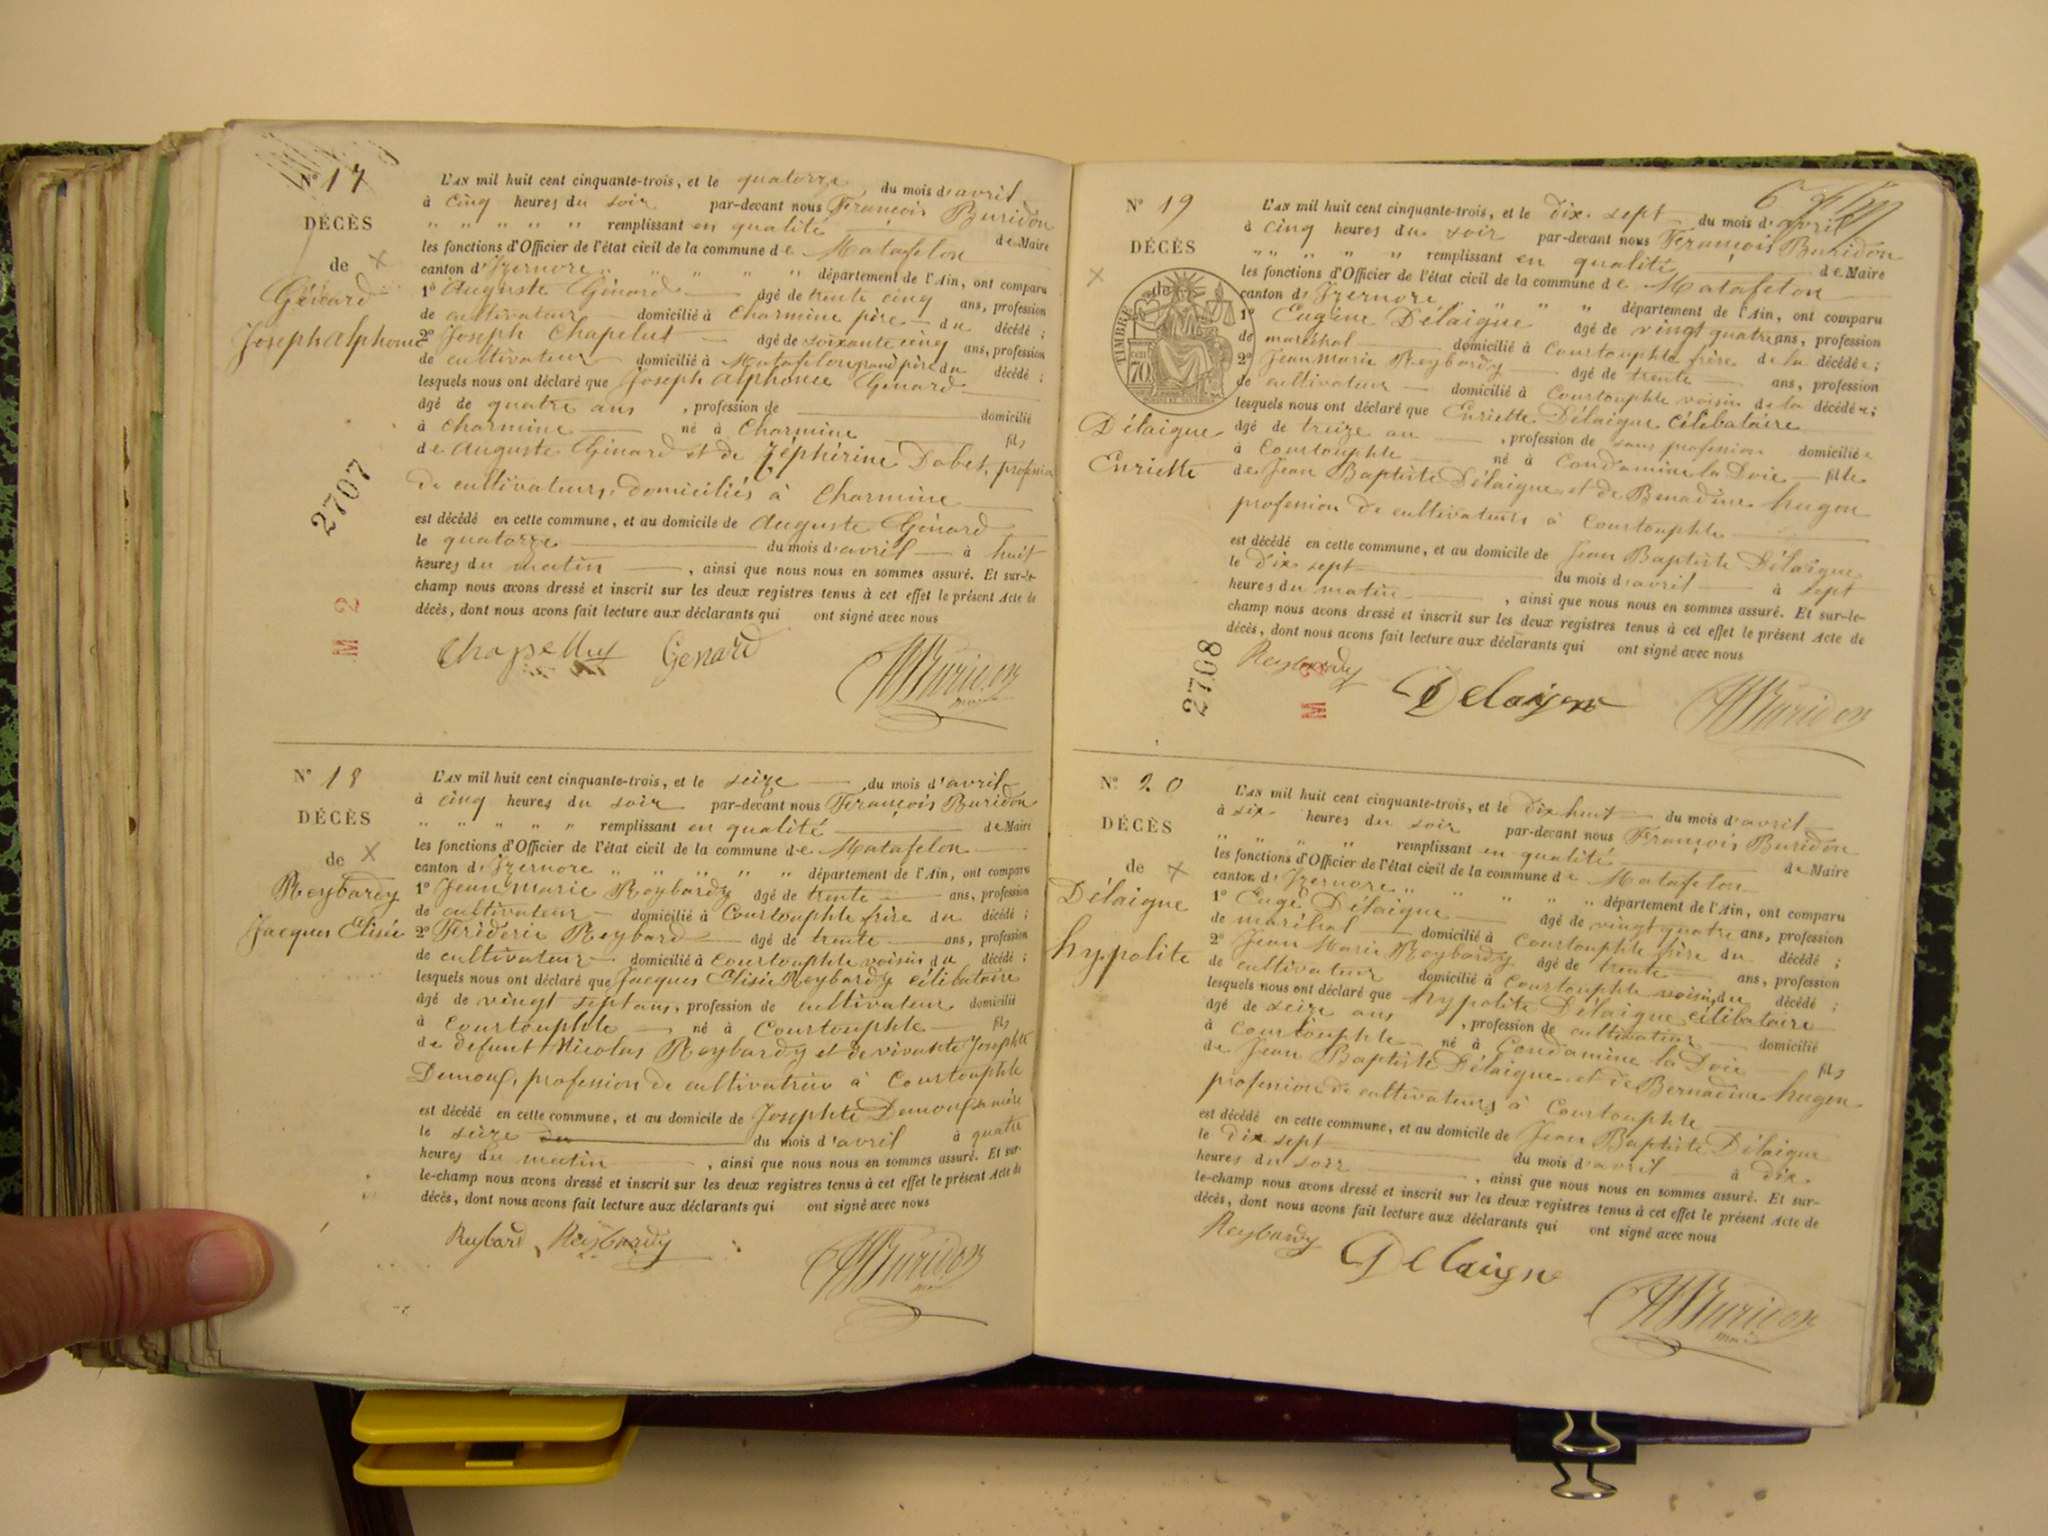 N° 17
DÉCÈS
de
Génard
Joseph alphonce
2707
M 2
L'AN mil huit cent cinquante-trois, et le quatorze du mois d'avril
à cinq heures du soir par-devant nous François Buridon
" " " " " " remplissant en qualité de Maire
les fonctions d'Officier de l'état civil de la commune de Matafelon
canton d'Izernore " " " " " département de l'Ain, ont comparu
1° Auguste Génard âgé de trente cinq ans, profession
de cultivateur domicilié à Charmine père du décédé ;
2° Joseph Chapelut âgé de soixante cinq ans, profession
de cultivateur domicilié à Matafelon grand père du décédé ;
lesquels nous ont déclaré que Joseph alphonce Génard
âgé de quatre ans , profession de domicilié
à Charmine né à Charmine fils
de Auguste Génard et de Zéphirine Dobet, profession
de cultivateurs, domiciliés à Charmine
est décédé en cette commune, et au domicile de Auguste Génard
le quatorze du mois d'avril à huit
heures du matin , ainsi que nous nous en sommes assuré. Et sur-le-
champ nous avons dressé et inscrit sur les deux registres tenus à cet effet le présent Acte de
décès, dont nous avons fait lecture aux déclarants qui ont signé avec nous
Chapelluy Genard Buridon
maire
N° 18
DÉCÈS
de
Reybardy
Jacques Elisée
L'AN mil huit cent cinquante-trois, et le seize du mois d'avril
à cinq heures du soir par-devant nous François Buridon
" " " " " remplissant en qualité de Maire
les fonctions d'Officier de l'état civil de la commune de Matafelon
canton d'Izernore " " " " " département de l'Ain, ont comparu
1° Jean marie Reybardy âgé de trente ans, profession
de cultivateur domicilié à Courtouphle frère du décédé ;
2° Fréderic Reybard âgé de trente ans, profession
de cultivateur domicilié à Courtouphle voisin du décédé ;
lesquels nous ont déclaré que Jacques Elisée Reybardy célibataire
âgé de vingt sept ans, profession de cultivateur domicilié
à Courtouphle né à Courtouphle fils
de defunt Nicolas Reybardy et de vivante Josephte
Demouf, profession de cultivatrice à Courtouphle
est décédé en cette commune, et au domicile de Josephte Demouf sa mère
le seize du mois d'avril à quatre
heures du matin , ainsi que nous nous en sommes assuré. Et sur-
le-champ nous avons dressé et inscrit sur les deux registres tenus à cet effet le présent Acte de
décès, dont nous avons fait lecture aux déclarants qui ont signé avec nous
Reybard, Reybardy Buridon
N° 19
DÉCÈS
TIMBRE
70
Délaigue
Enriette
2708
M
L'AN mil huit cent cinquante-trois, et le dix sept du mois d'avril
à cinq heures du soir par-devant nous François Buridon
" " " " " remplissant en qualité de Maire
les fonctions d'Officier de l'état civil de la commune de Matafelon
canton d'Izernore " " " " département de l'Ain, ont comparu
1° Eugène Délaigue âgé de vingt quatre ans, profession
de maréchal domicilié à Courtouphle frère de la décédée ;
2° Jean Marie Reybardy âgé de trente ans, profession
de cultivateur domicilié à Courtouphle voisin de la décédée ;
lesquels nous ont déclaré que Enriette Délaigue célibataire
âgé de treize an , profession de sans profession domiciliée
à Courtouphle né à Condamine la Doie fille
de Jean Baptiste Délaigue et de Benadine hugon
profession de cultivateurs à Courtouphle
est décédé en cette commune, et au domicile de Jean Baptiste Délaigue
le dix sept du mois d'avril à sept
heures du matin , ainsi que nous nous en sommes assuré. Et sur-le-
champ nous avons dressé et inscrit sur les deux registres tenus à cet effet le présent Acte de
décès, dont nous avons fait lecture aux déclarants qui ont signé avec nous
Reybardy Delaigue Buridon
N° 20
DÉCÈS
de
Délaigue
hyppolite
L'AN mil huit cent cinquante-trois, et le dix huit du mois d'avril
à six heures du soir par-devant nous François Buridon
" " " " remplissant en qualité de Maire
les fonctions d'Officier de l'état civil de la commune de Matafelon
canton d'Izernore " " " " " département de l'Ain, ont comparu
1° Eugè Délaigue âgé de vingt quatre ans, profession
de maréchal domicilié à Courtouphle frère du décédé ;
2° Jean Marie Reybardy âgé de trente ans, profession
de cultivateur domicilié à Courtouphle voisin du décédé ;
lesquels nous ont déclaré que hypolite Délaigue célibataire
âgé de seize ans , profession de cultivateur domicilié
à Courtouphle né à Condamine la Doie fils
de Jean Baptiste Délaigue et de Bernadine hugon
profession de cultivateurs à Courtouphle
est décédé en cette commune, et au domicile de Jean Baptiste Délaigue
le dix sept du mois d'avril à dix
heures du soir , ainsi que nous nous en sommes assuré. Et sur-
le-champ nous avons dressé et inscrit sur les deux registres tenus à cet effet le présent Acte de
décès, dont nous avons fait lecture aux déclarants qui ont signé avec nous
Reybardy Delaigue Buridon
maire